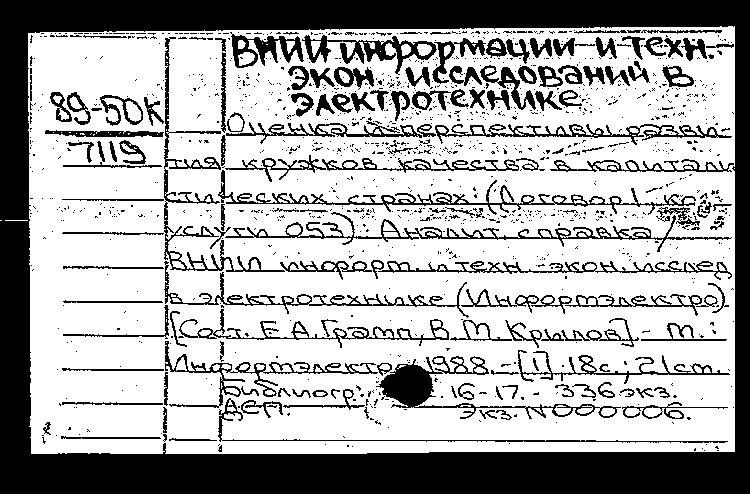 ВНИИ информации и техн.-
экон. исследований в
электротехнике
89-50К
7119
Оценка и перспективы разви-
тия кружков качества в капитали
стических странах: (Договор 1,
услуги 053): Аналит. справка /
ВНИИ информ. и техн.-экон. исслед
в электротехнике (Информэлектро)
[Сост. Е.А. Грамп, В.М. Крылов].- М.:
Информэлектро, 1988.- [1], 18с.; 21см.
Библиогр.: 16-17.- 336экз.
ДЕП. Экз. N000006.